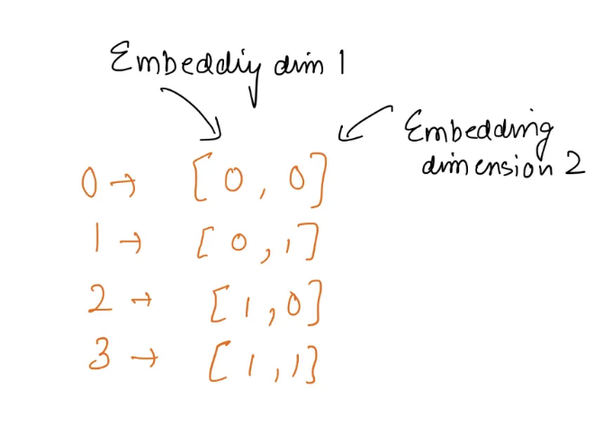 Embeddiy dim 1
Embedding
dimension 2
0 → [0, 0]
1 → [0, 1]
2 → [1, 0]
3 → [1, 1]